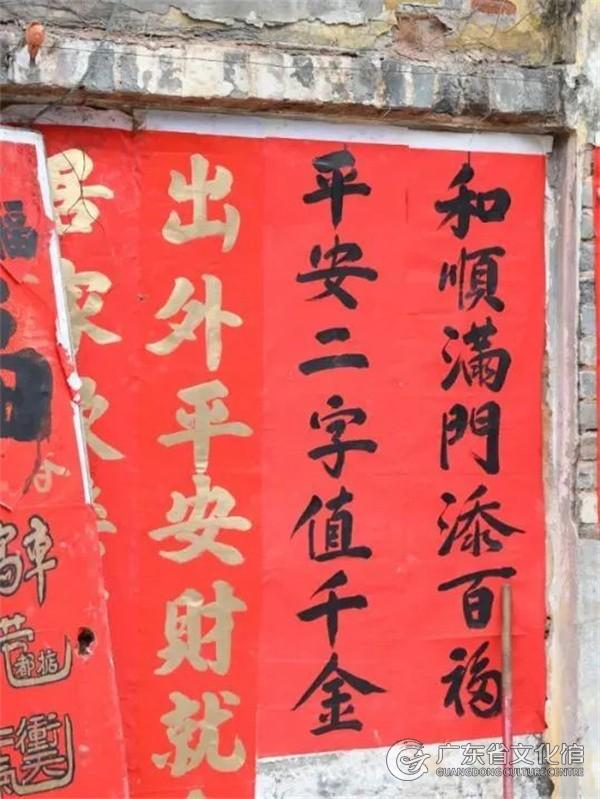 和順滿門添百福
平安二字值千金
出外平安財就
居家歡
福
都掂
衝
广东省文化馆
GUANGDONG CULTURE CENTRE